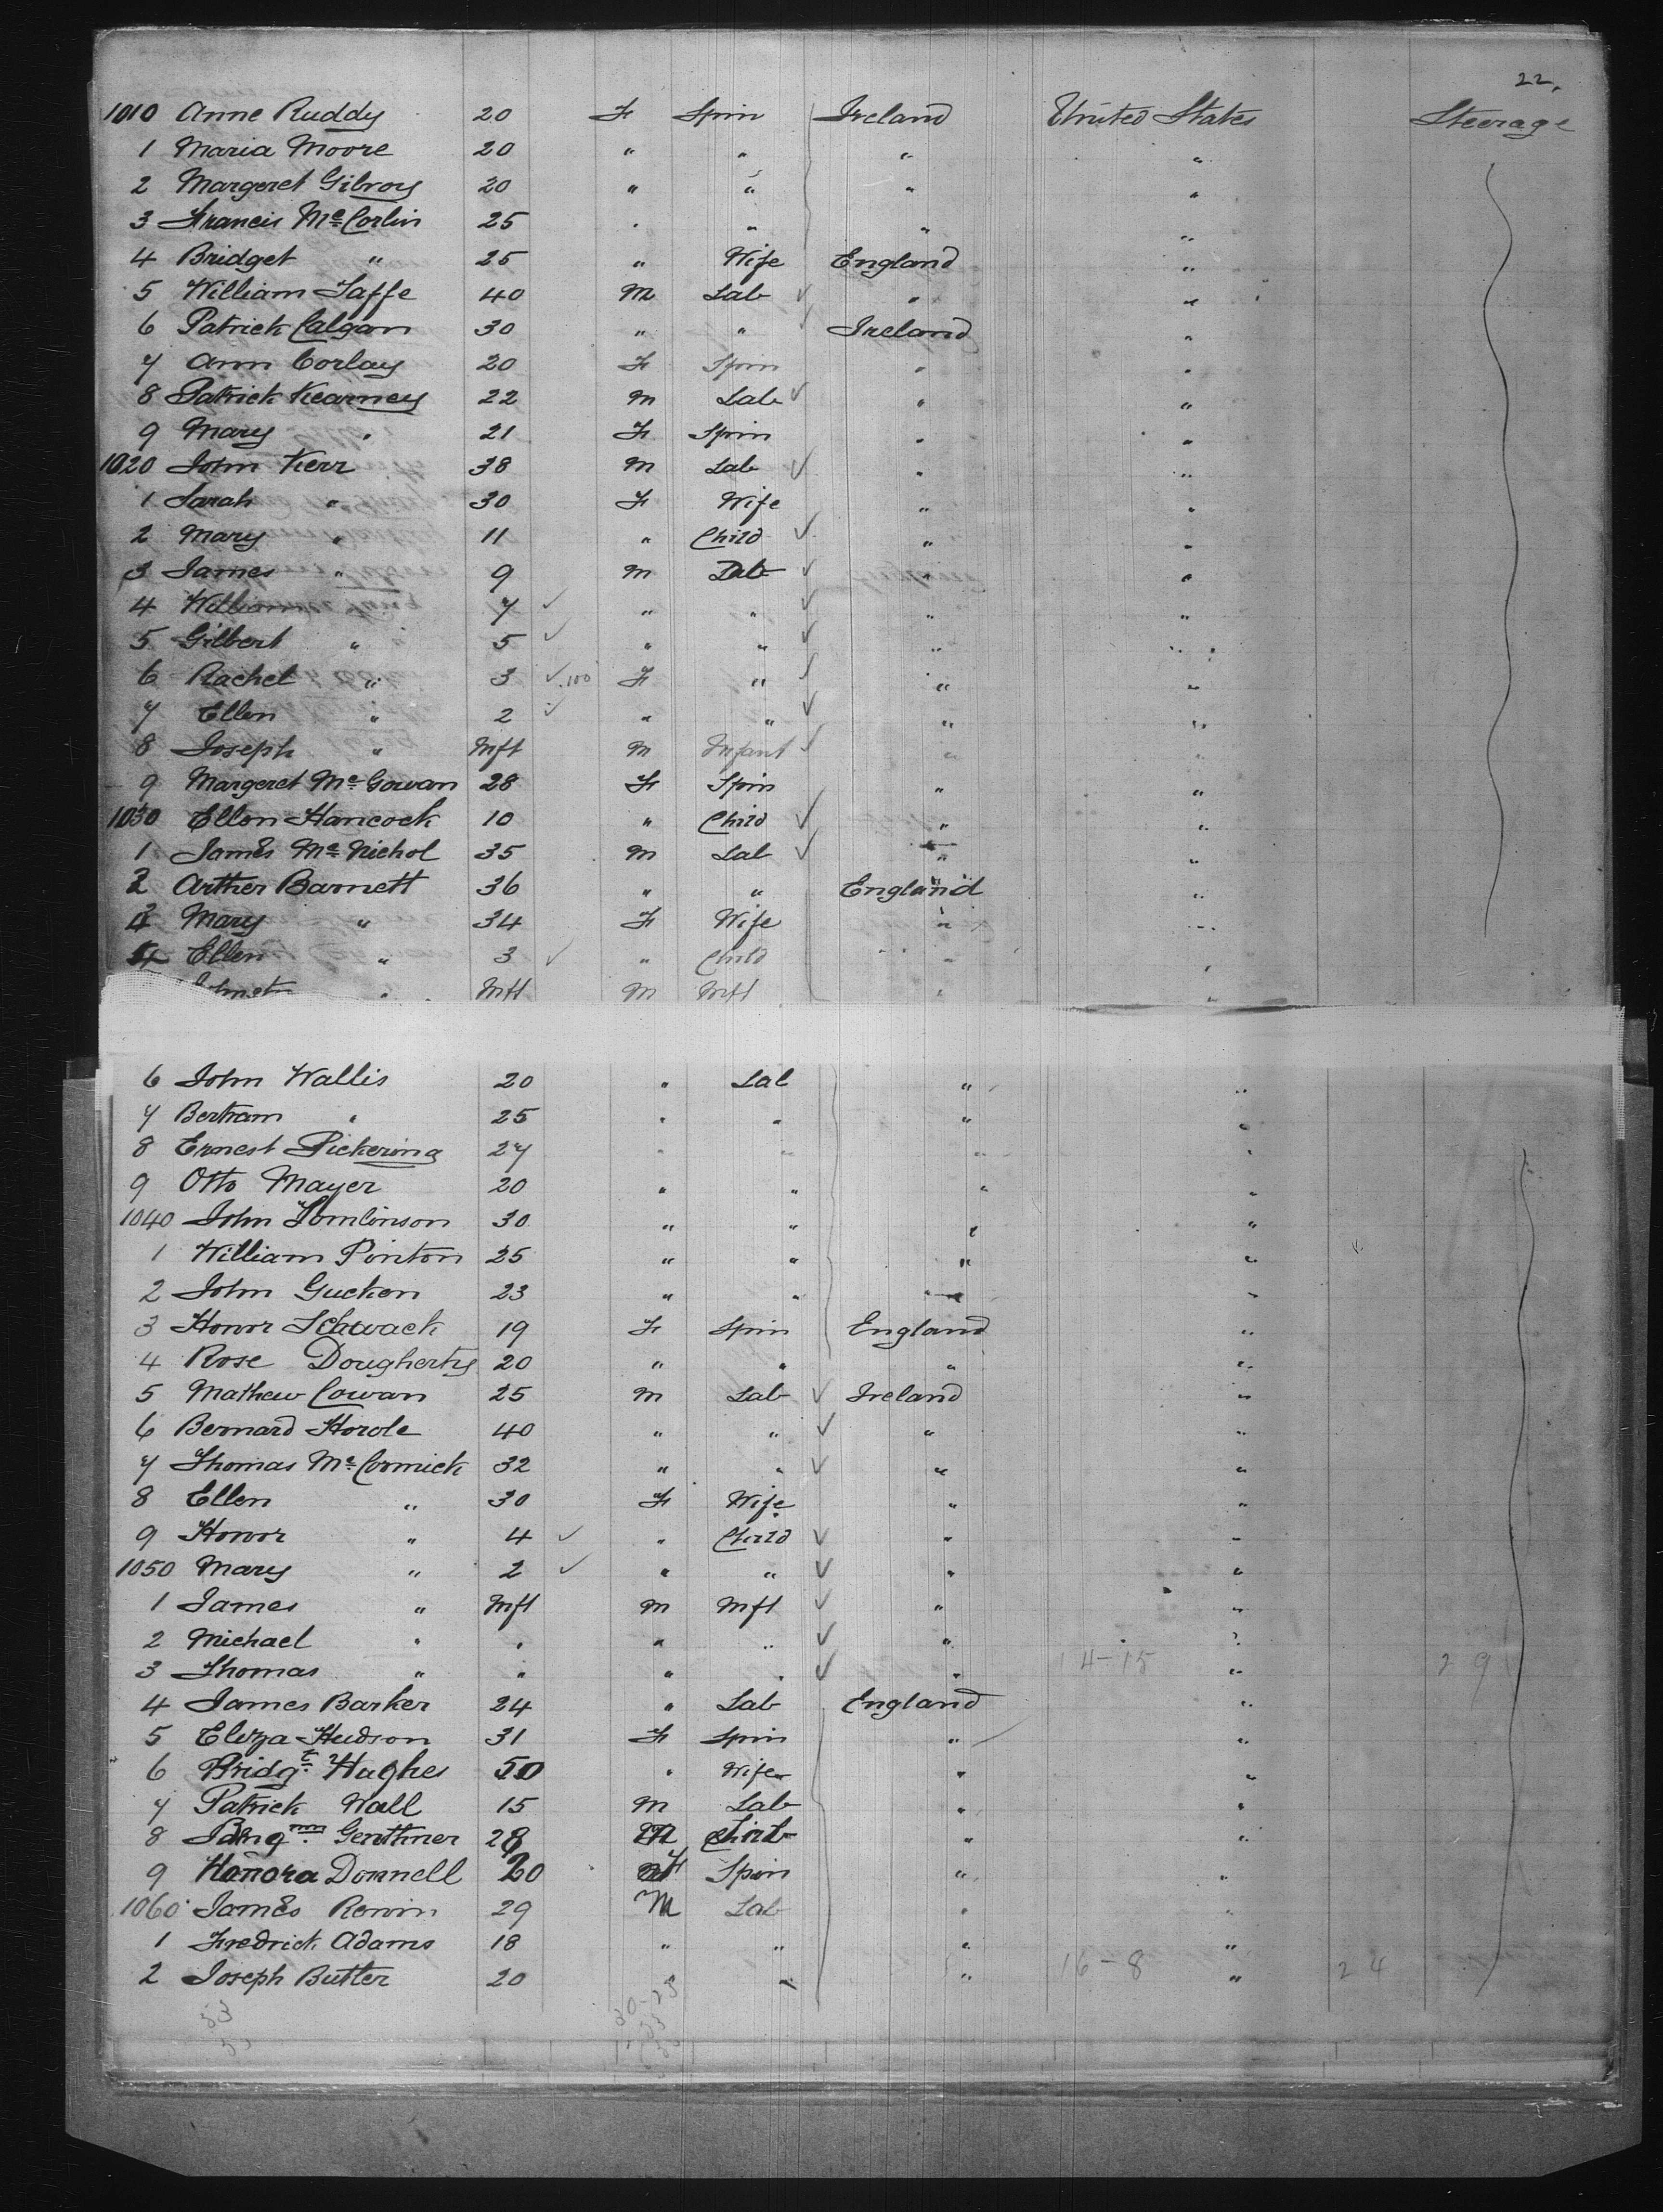 22.
1010 Anne Ruddy 20 F Spin Ireland United States Steerage
1 Maria Moore 20 " " " "
2 Margeret Gilroy 20 " " " "
3 Francis Mc Corlin 25 " " " "
4 Bridget " 25 " Wife England "
5 William Taffe 40 M Lab " "
6 Patrick Calgan 30 " " Ireland "
7 Ann Corlay 20 F Spin " "
8 Patrick Kearney 22 M Lab " "
9 Mary " 21 F Spin " "
1020 John Kerr 38 M Lab " "
1 Sarah " 30 F Wife " "
2 Mary " 11 " Child " "
3 James " 9 M " "
4 William " 7 " " " "
5 Gilbert " 5 " " " "
6 Rachel " 3 F " " "
7 Ellen " 2 " " " "
8 Joseph " Inft M Infant " "
9 Margeret Mc Gowan 28 F Spin " "
1030 Ellen Hancock 10 " Child " "
1 James Mc Nichol 35 M Lab " "
2 Arther Barnett 36 " " England "
3 Mary " 34 F Wife " "
4 Ellen " 3 " Child " "
" Inft M Inft " "
6 John Wallis 20 " Lab " "
7 Bertram " 25 " " " "
8 Ernest Pickering 27 " " " "
9 Otto Mayer 20 " " " "
1040 John Tomlinson 30 " " " "
1 William Pinton 25 " " " "
2 John Gucken 23 " " " "
3 Honor Schwack 19 F Spin England "
4 Rose Dougherty 20 " " " "
5 Mathew Cowan 25 M Lab Ireland "
6 Bernard Horole 40 " " " "
7 Thomas Mc Cormick 32 " " " "
8 Ellen " 30 F Wife " "
9 Honor " 4 " Child " "
1050 Mary " 2 " " " "
1 James " Inft M Inft " "
2 Michael " " " " " "
3 Thomas " " " " " 14-15 " 29
4 James Barker 24 " Lab England "
5 Eliza Hudson 31 F Spin " "
6 Bridgt Hughes 50 " Wife " "
7 Patrick Wall 15 M Lab " "
8 Genthner 28 M " "
9 Honora Donnell 20 F Spin " "
1060 James Renin 29 M Lab " "
1 Fredrick Adams 18 " " " "
2 Joseph Butler 20 " " " 16-8 " 24